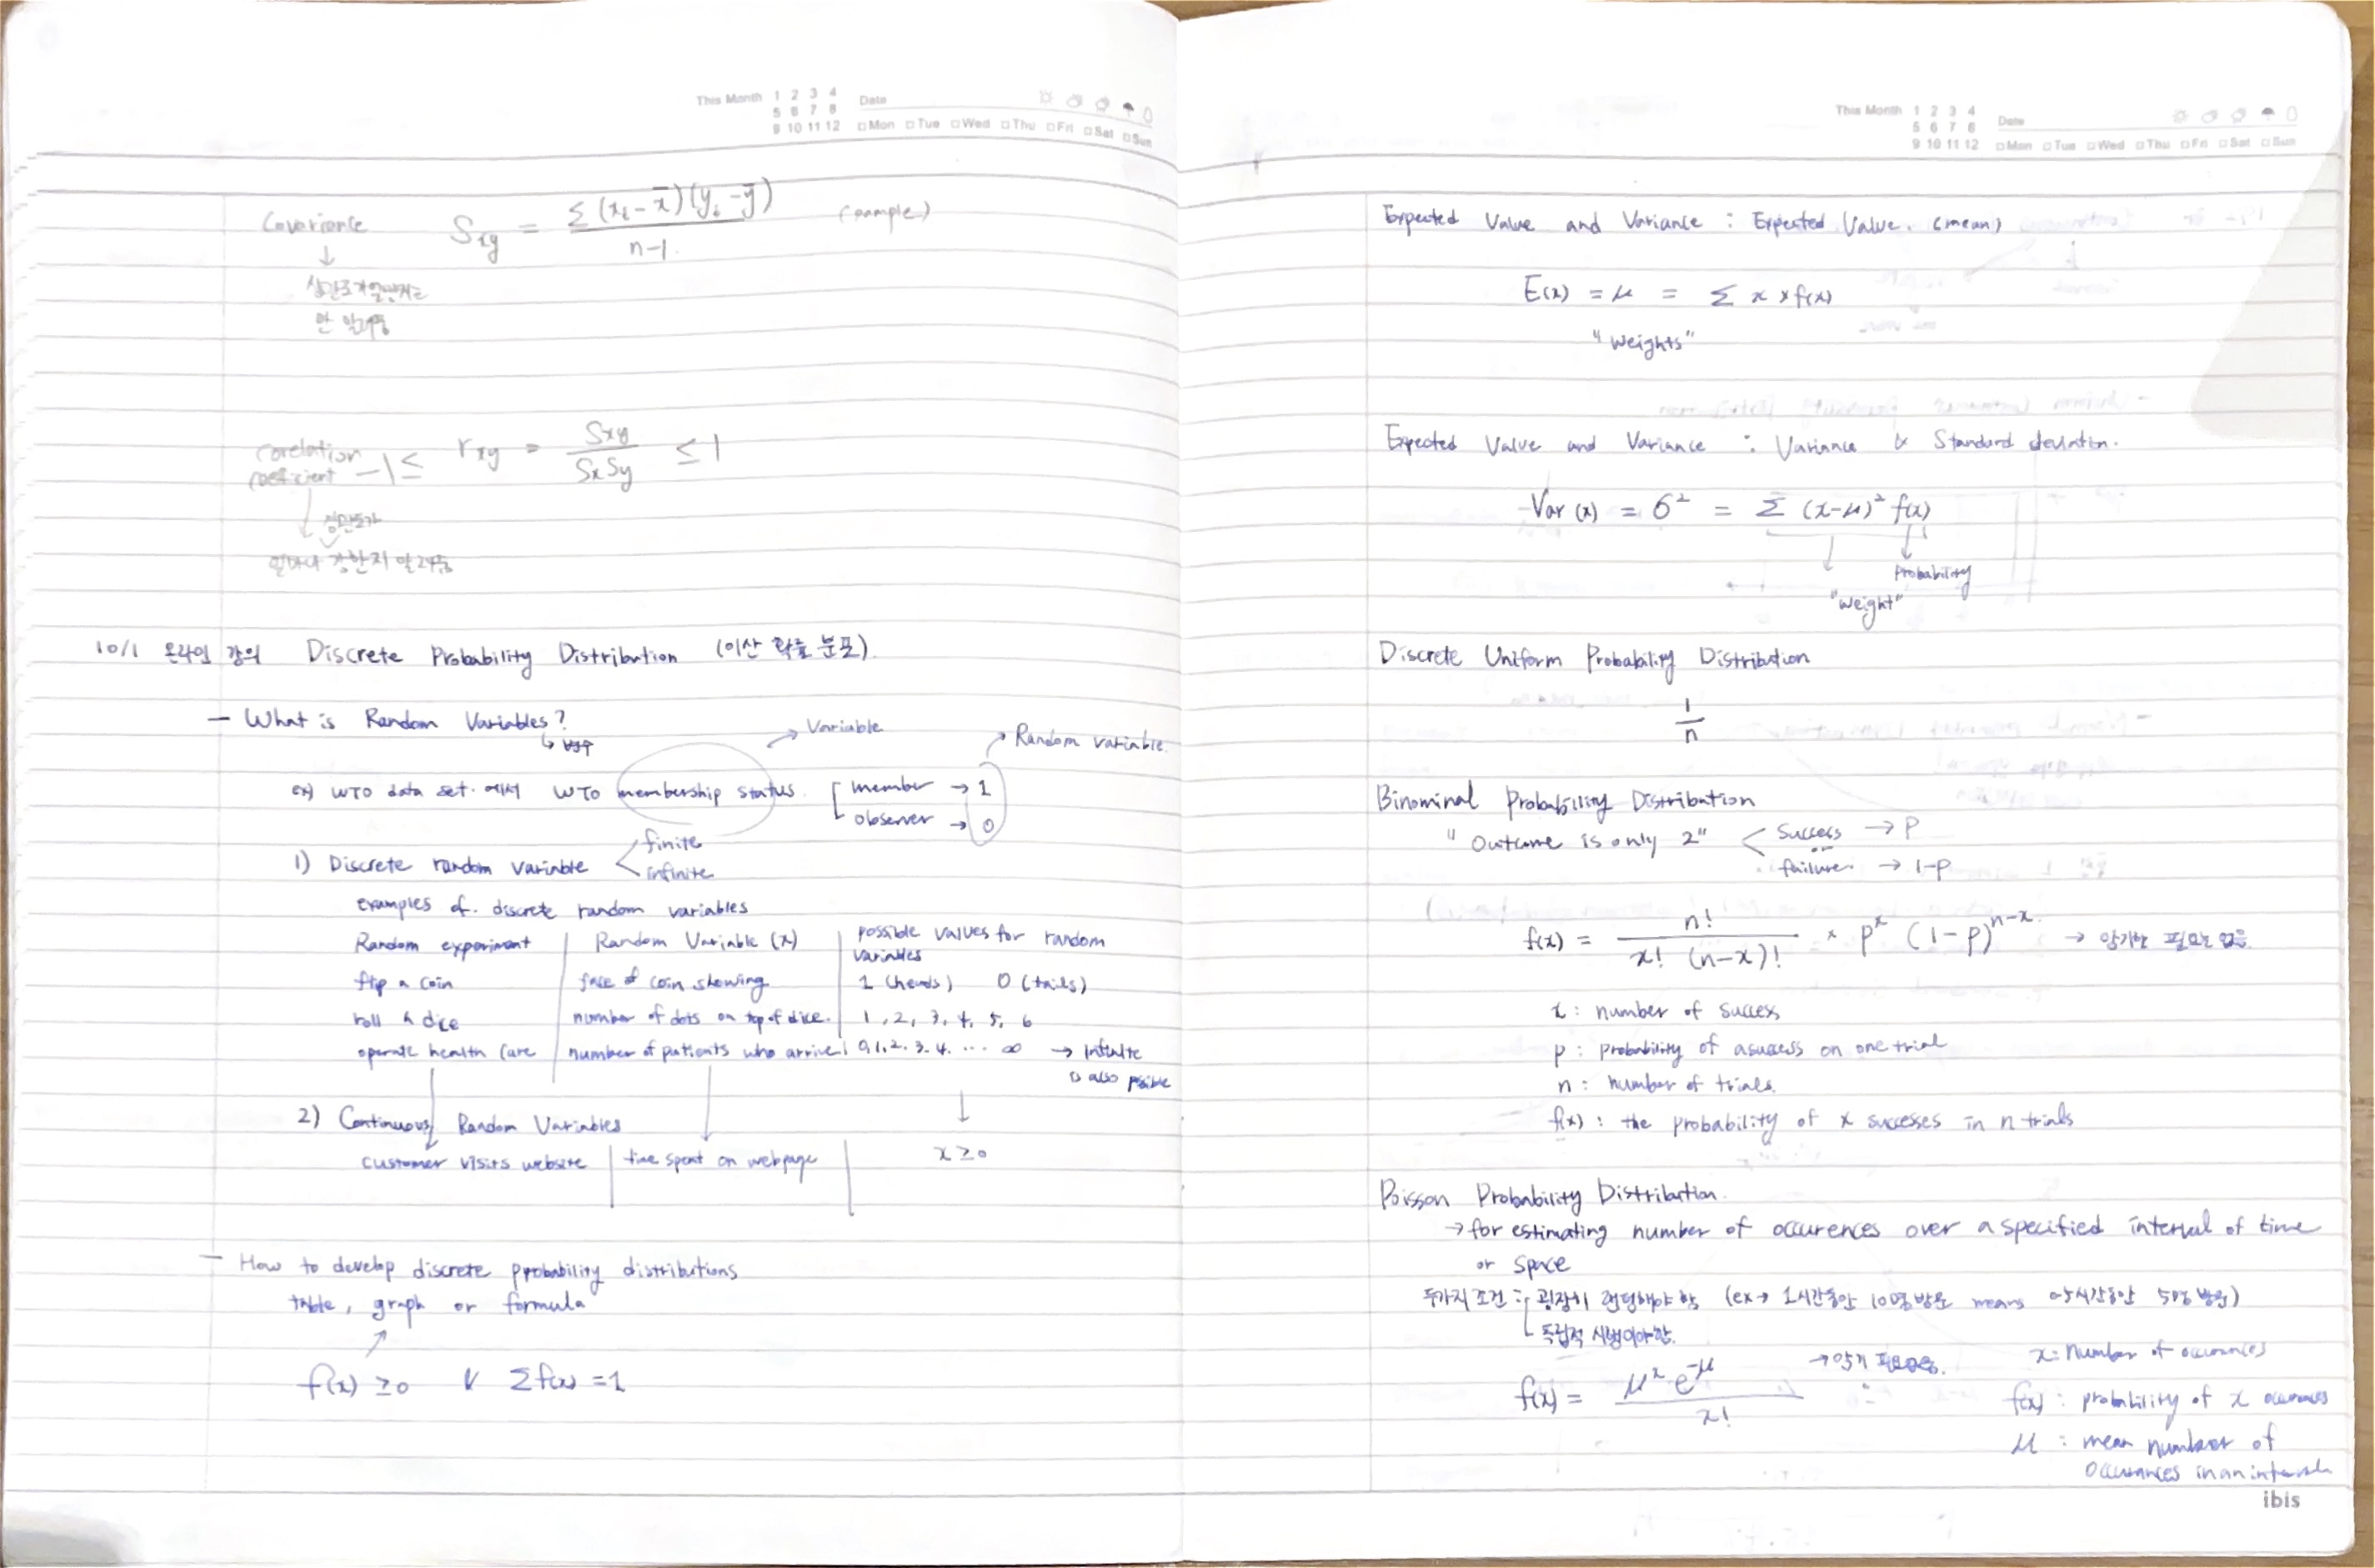 This Month 1 2 3 4
5 6 7 8
9 10 11 12
Date
□Mon □Tue □Wed □Thu □Fri □Sat □Sun
Covariance Sxy = Σ(xi - x̄)(yi - ȳ) / n-1. (sample)
↓
만 알려줌
Corelation coefficient -1 ≤ rxy = Sxy / SxSy ≤ 1
상관도가
얼마나 강한지 알려줌
10/1 온라인 강의 Discrete Probability Distribution (이산 확률 분포).
- What is Random Variables?
↳ 변수
→ Variable
→ Random variable.
ex) WTO data set. 에서 WTO membership status. [ member → 1
observer → 0
1) Discrete random variable < finite
infinite
examples of. discrete random variables
Random experiment | Random Variable (x) | possible values for random variables
flip a coin | face of coin showing | 1 (heads) 0 (tails)
roll a dice | number of dots on top of dice. | 1, 2, 3, 4, 5, 6
operate health care | number of patients who arrive | 0, 1, 2. 3. 4. ... ∞ → infinite
is also psible
2) Continuous Random Variables
customer visits website | time spent on webpage | x ≥ 0
- How to develop discrete probability distributions
table, graph or formula
f(x) ≥ 0 & Σf(x) = 1
This Month 1 2 3 4
5 6 7 8
9 10 11 12
Date
□Mon □Tue □Wed □Thu □Fri □Sat □Sun
Expected Value and Variance : Expected Value. (mean)
E(x) = μ = Σ x × f(x)
"Weights"
Expected Value and Variance : Variance & Standard deviation.
Var (x) = σ² = Σ (x-μ)² f(x)
Probability
"weight"
Discrete Uniform Probability Distribution
1/n
Binominal Probability Distribution
"Outcome is only 2" < Success → P
or
failure → 1-P
f(x) = n! / x! (n-x)! × p^x (1-p)^n-x. → 암기할 필요는 없음
x: number of success
p: probability of a success on one trial
n: number of trials.
f(x) : the probability of x successes in n trials
Poisson Probability Distribution.
→ for estimating number of occurences over a specified interval of time
or space
두가지 조건 : 굉장히 랜덤해야 함 (ex → 1시간동안 10명 방문 means 0.5시간동안 5명 방문)
독립적 시행이어야함.
f(x) = μ^x e^-μ / x!
x: Number of occurances
f(x) : probability of x occurances
μ : mean number of
occurances in an interval
ibis